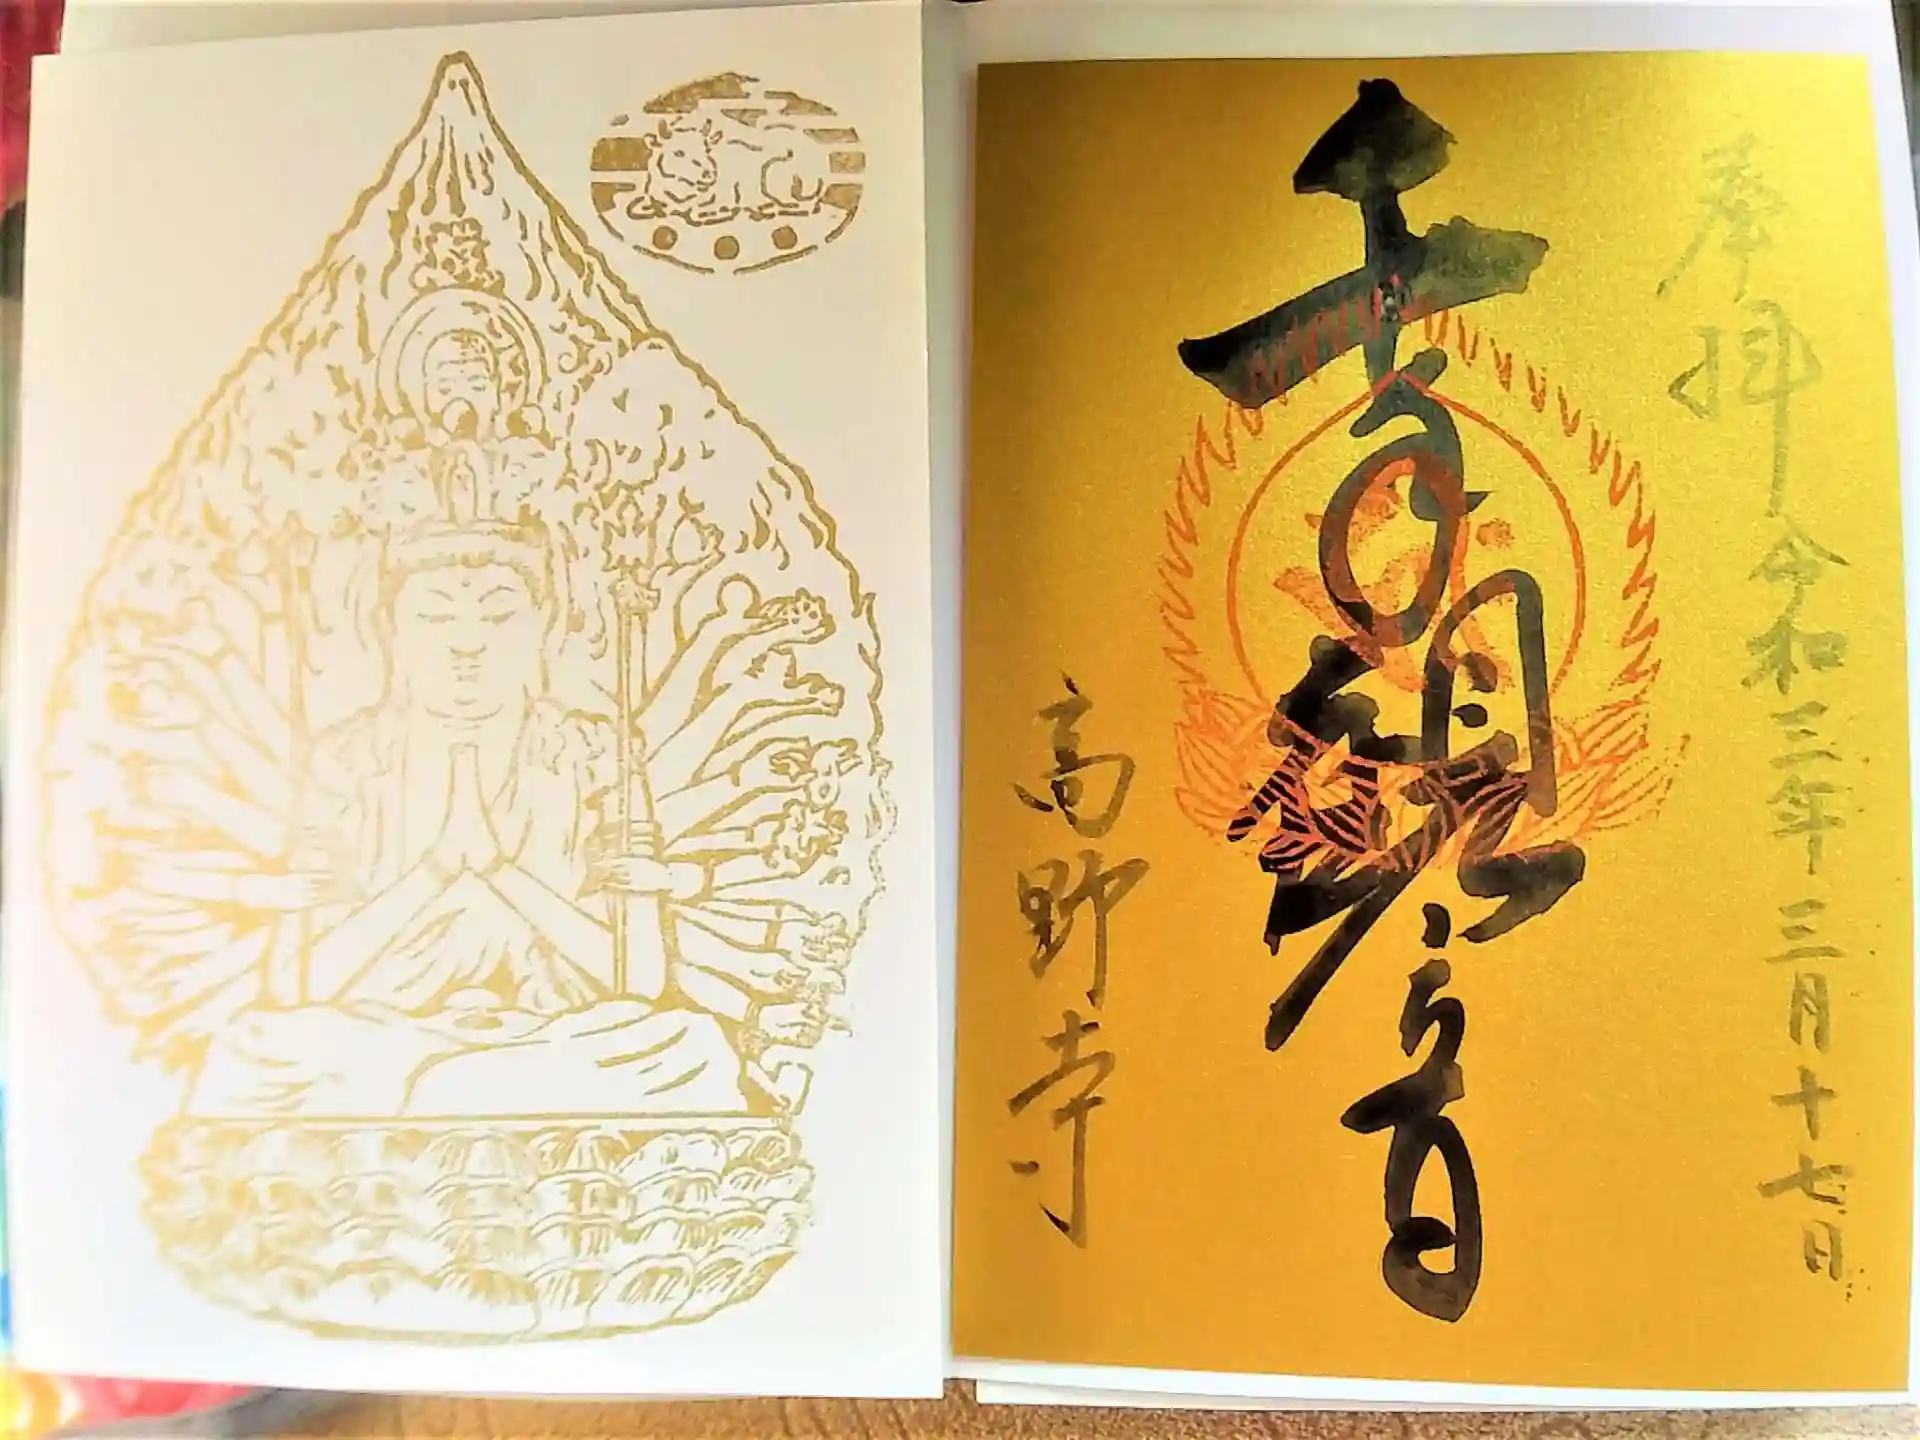 奉拝 令和三年三月十七日
千手観音
高野寺